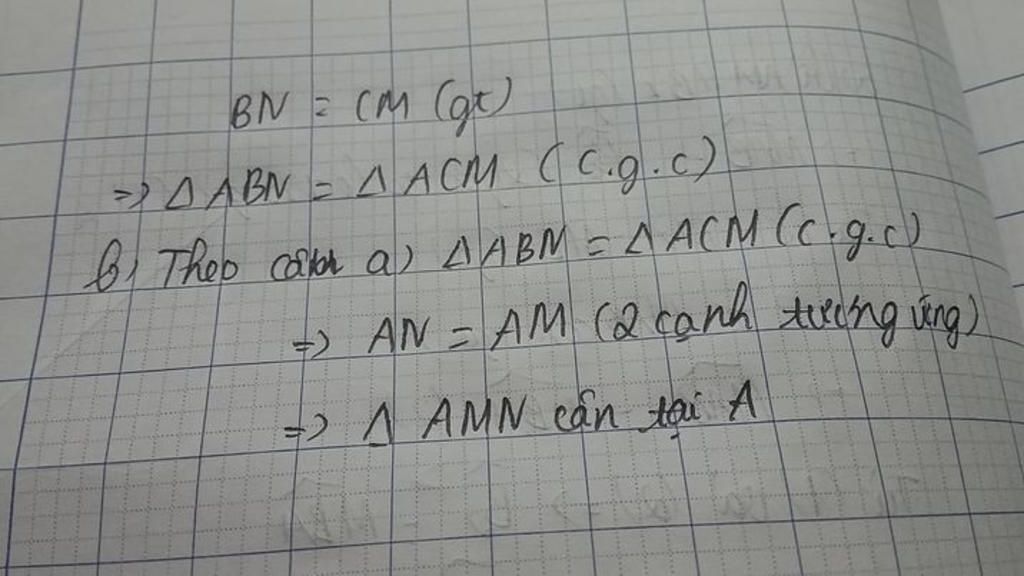 BN = CM (gt)
=> Δ ABN = Δ ACM (c.g.c)
b) Theo câu a) Δ ABN = Δ ACM (c.g.c)
=> AN = AM (2 cạnh tương ứng)
=> Δ AMN cân tại A